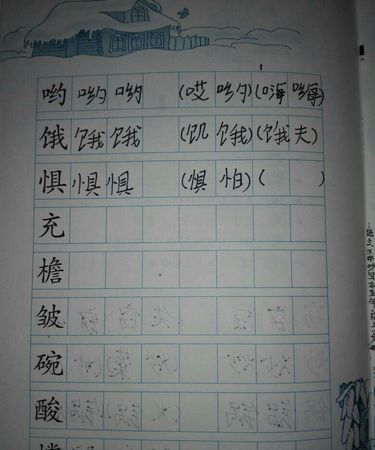 哟 哟 哟 (哎 哟)(嗨 嗨)
饿 饿 饿 (饥 饿)(饿 夫)
惧 惧 惧 (惧 怕)( )
充
檐
皱
碗
酸